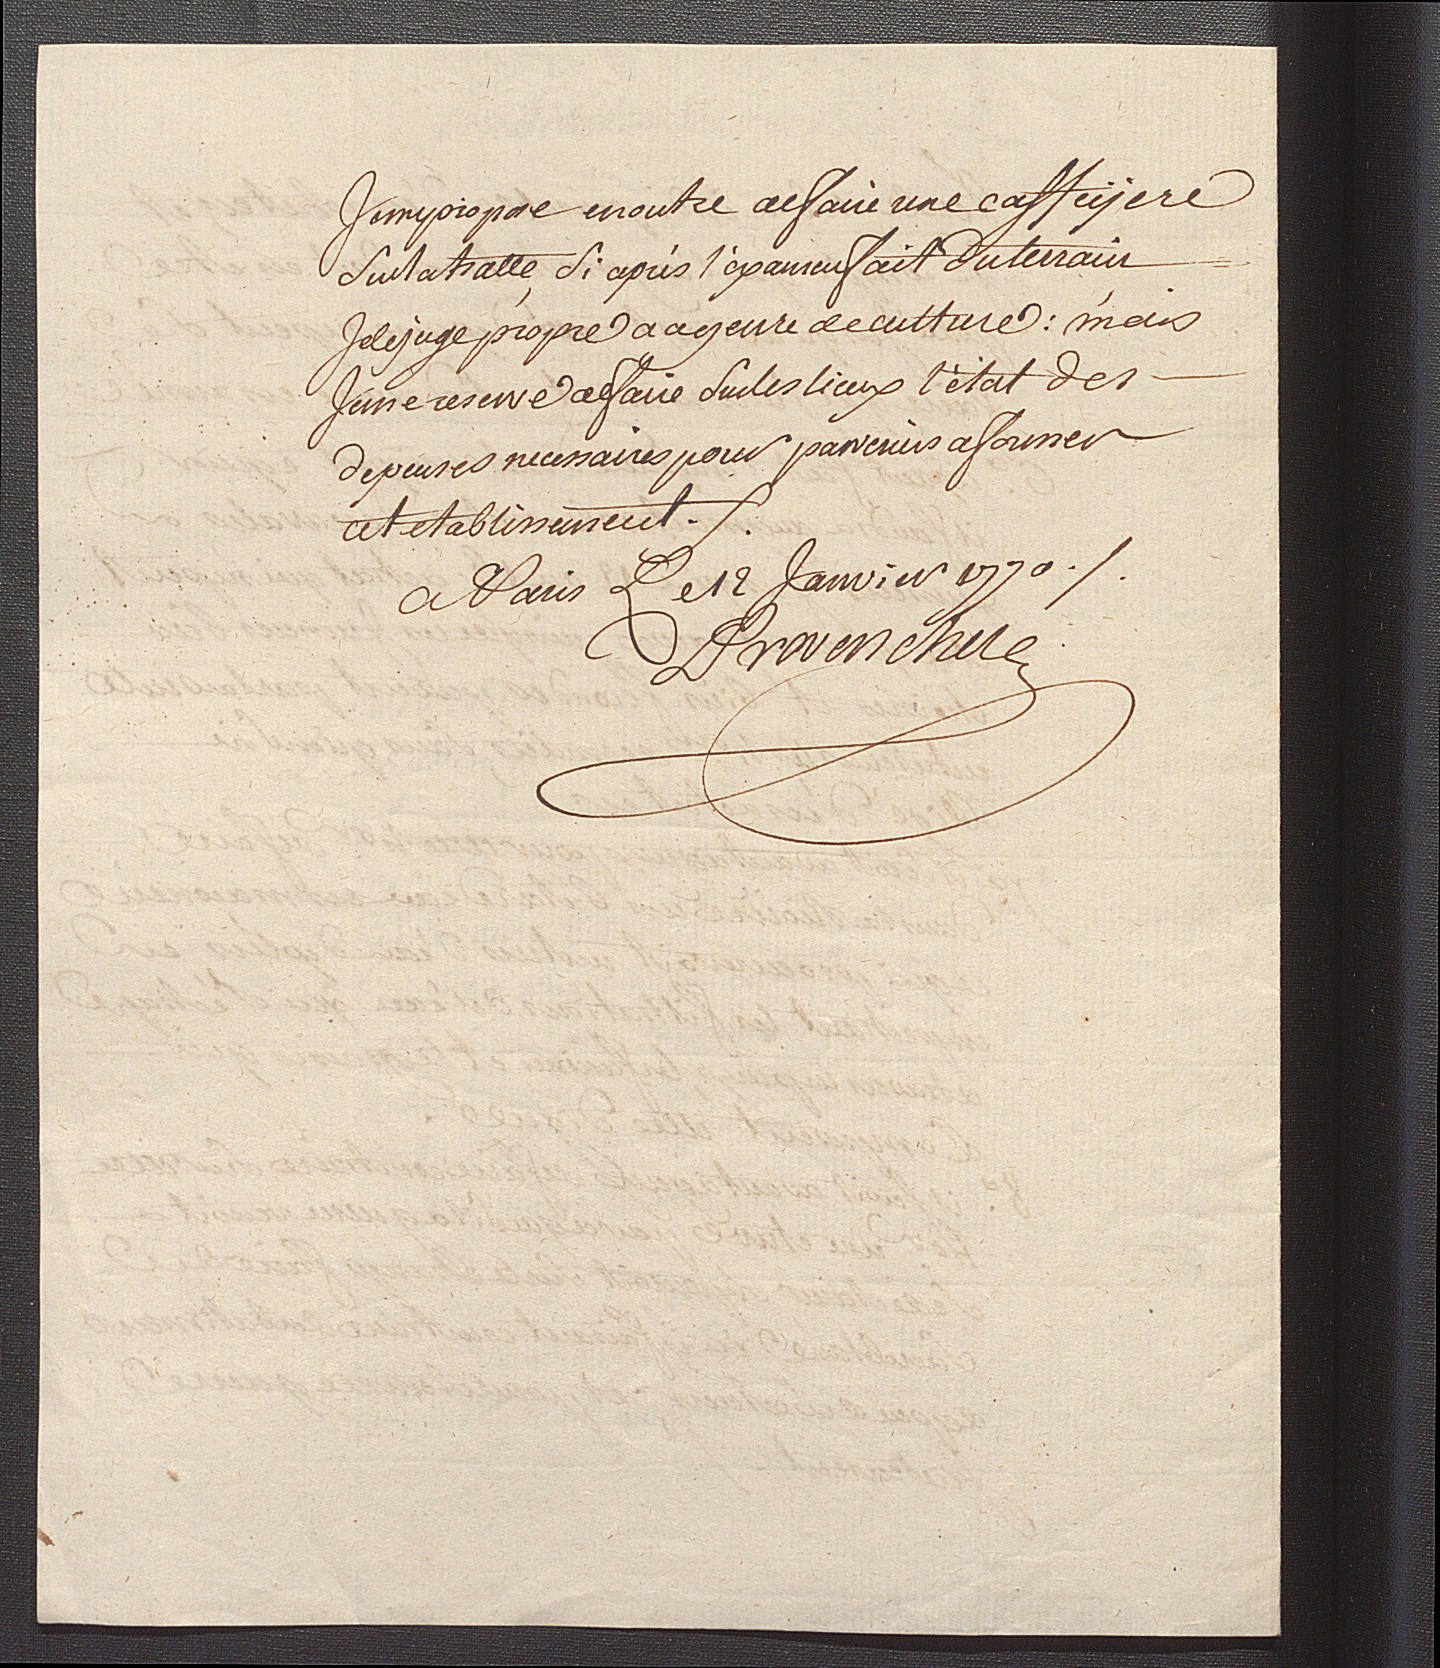 Jemypropose enoutre defaire une caffeyere
Surlatratte, Si aprés l'examenfait Duterrain
Jelejuge propre a cegenre deculture : mais
Jemereserve defaire Surleslieux l'état des
depenses necessaires pour parvenir aformer
cetetablissement ./.
a Paris Le 12 Janvier 1770 ./.
Provenchere